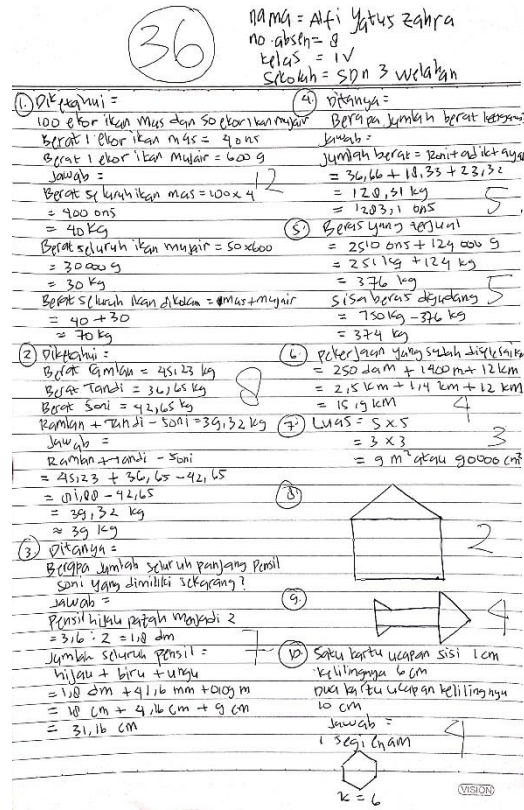 36
nama = Alfi Yatus Zahra
no absen = 8
kelas = IV
Sekolah = SDN 3 Welahan
1. Diketahui =
100 ekor ikan mas dan 50 ekor ikan mujair
Berat 1 ekor ikan mas = 4 ons
Berat 1 ekor ikan mujair = 600 g
Jawab =
Berat seluruh ikan mas = 100 x 4
= 400 ons
= 40 kg
Berat seluruh ikan mujair = 50 x 600
= 30000 g
= 30 kg
Berat seluruh ikan dikolam = mas + mujair
= 40 + 30
= 70 kg
12
2 Diketahui =
Berat Ramlan = 45,23 kg
Berat Tandi = 36,65 kg
Berat Soni = 42,65 kg
Ramlan + Tandi - Soni = 39,32 kg
Jawab =
Ramlan + Tandi - Soni
= 45,23 + 36,65 - 42,65
= 81,88 - 42,65
= 39,32 kg
≈ 39 kg
8
3. Ditanya =
Berapa Jumlah seluruh panjang Pensil
Soni yang dimiliki sekarang?
Jawab =
Pensil hijau patah menjadi 2
= 3,6 : 2 = 1,8 dm
Jumlah seluruh pensil =
hijau + biru + ungu
= 1,8 dm + 41,6 mm + 0,09 m
= 18 cm + 4,16 cm + 9 cm
= 31,16 cm
7
4. Ditanya =
Berapa Jumlah berat
Jawab =
Jumlah berat = Roni + adik + ayah
= 36,66 + 18,33 + 23,32
= 128,31 kg
= 1283,1 ons
5
5 Beras yang terjual
= 2510 ons + 124 000 g
= 251 kg + 124 kg
= 376 kg
Sisa beras digudang
= 750 kg - 376 kg
= 374 kg
5
6. Pekerjaan yang sudah diselesaikan
= 250 dam + 1400 m + 12 km
= 2,5 km + 1,4 km + 12 km
= 15,9 km
4
7. Luas = S x S
= 3 x 3
= 9 m² atau 90000 cm²
3
8.
2
9.
4
10. Satu kartu ucapan sisi 1 cm
kelilingnya 6 cm
Dua kartu ucapan kelilingnya
10 cm
Jawab =
1 segi enam
k = 6
4
VISION